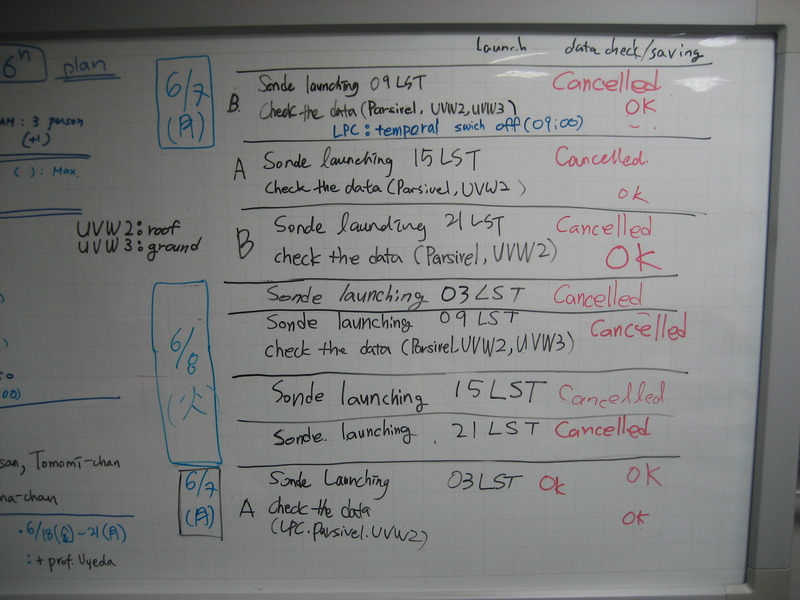 6ⁿ plan
launch data check/saving
6/7
(月)
Sonde launching 09LST Cancelled
B. Check the data (Parsivel, UVW2, UVW3) OK
LPC: temporal swich off (09:00) -
AM: 3 person
(+1)
( ): Max.
A Sonde launching 15LST Cancelled.
check the data (Parsivel, UVW2) OK
UVW2: roof
UVW3: ground
B Sonde launding 21LST Cancelled
check the data (Parsivel, UVW2) OK
6/8
(火)
Sonde launching 03LST Cancelled
Sonde launching 09LST Cancelled
check the data (Parsivel.UVW2, UVW3)
Sonde launching 15LST Cancelled
Sonde. launching. 21LST Cancelled
san, Tomomi-chan
na-chan
6/7
(月)
A Sonde Launching 03LST Ok OK
check the data OK
(LPC.Parsivel.UVW2)
・6/18(金)~21(月)
: + prof. Uyeda